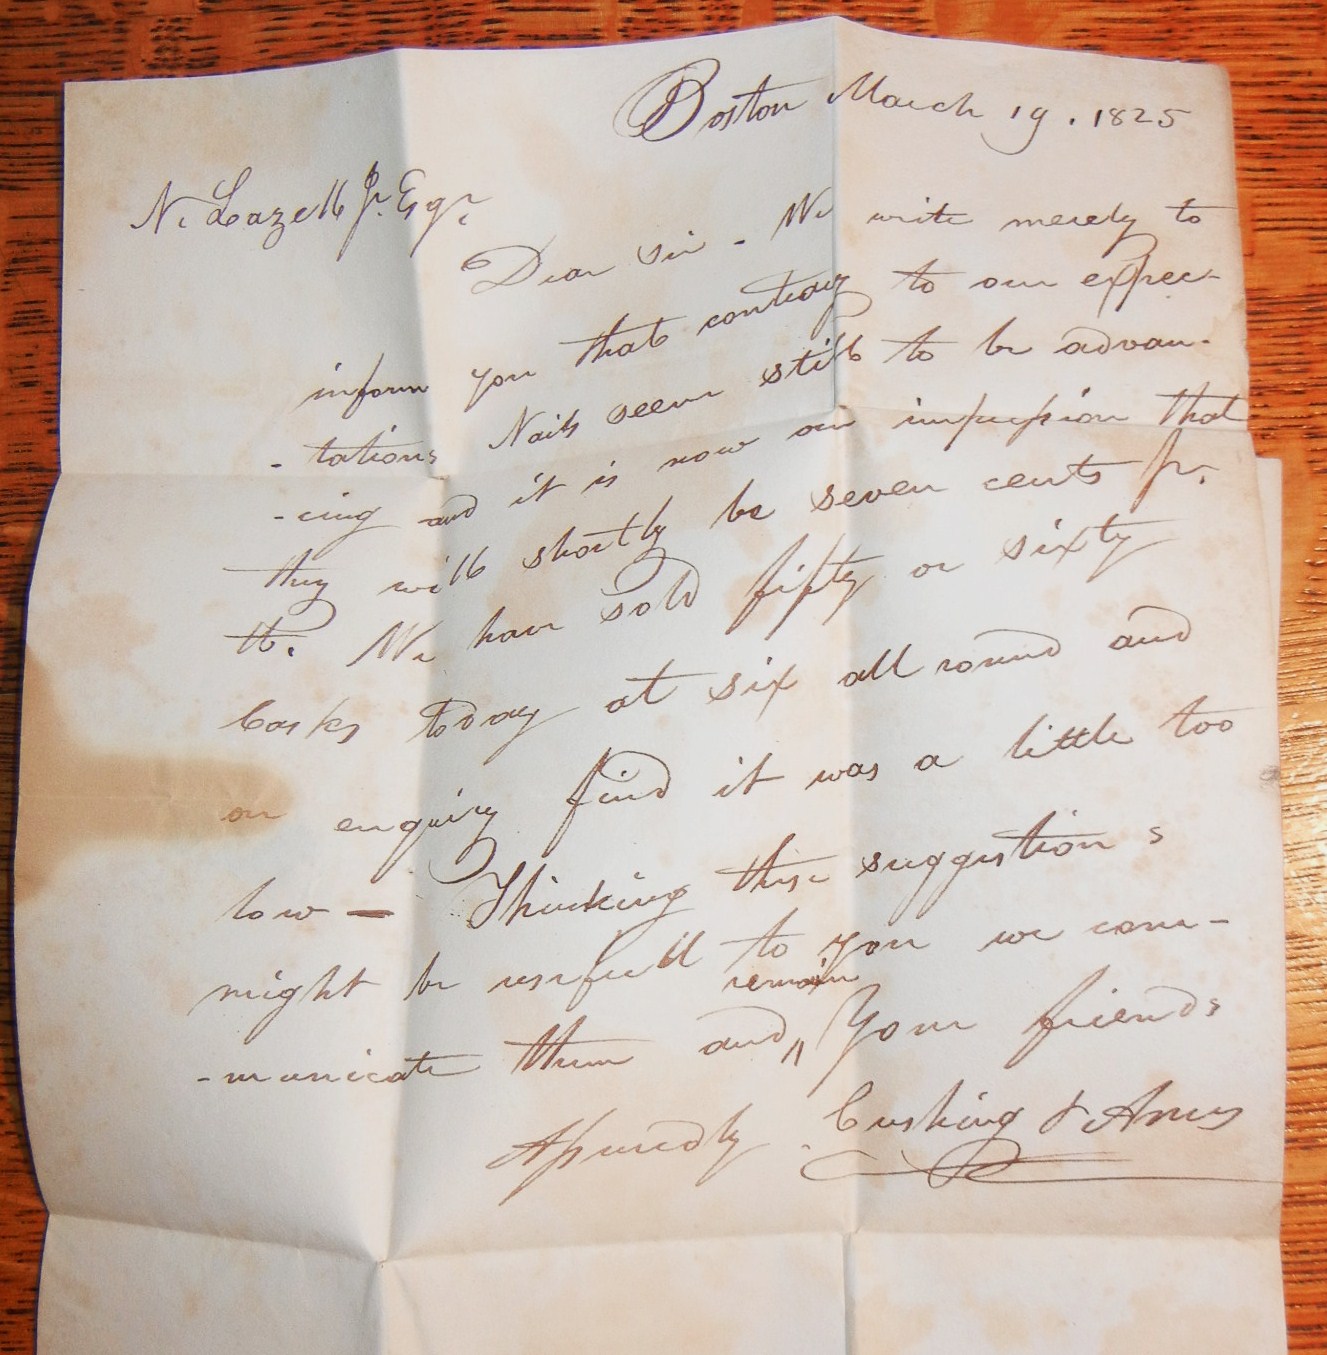 Boston March 19. 1825
N. Lazell Jr. Esqr.
Dear Sir - We write merely to
inform you that contrary to our expec-
-tations Nails seem still to be advan-
-cing and it is now our impression that
they will shortly be seven cents pr.
lb. We have sold fifty or sixty
Casks today at six all round and
on enquiry find it was a little too
low — Thinking these suggestions
might be usefull to you we com-
remain
-municate them and " Your friends
Assuredly Cushing & Ames